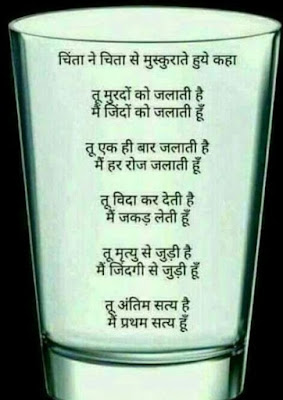 चिंता ने चिता से मुस्कुराते हुये कहा
तू मुरदों को जलाती है
मैं जिंदों को जलाती हूँ
तू एक ही बार जलाती है
मैं हर रोज जलाती हूँ
तू विदा कर देती है
मैं जकड़ लेती हूँ
तू मृत्यु से जुड़ी है
मैं जिंदगी से जुड़ी हूँ
तू अंतिम सत्य है
मैं प्रथम सत्य हूँ